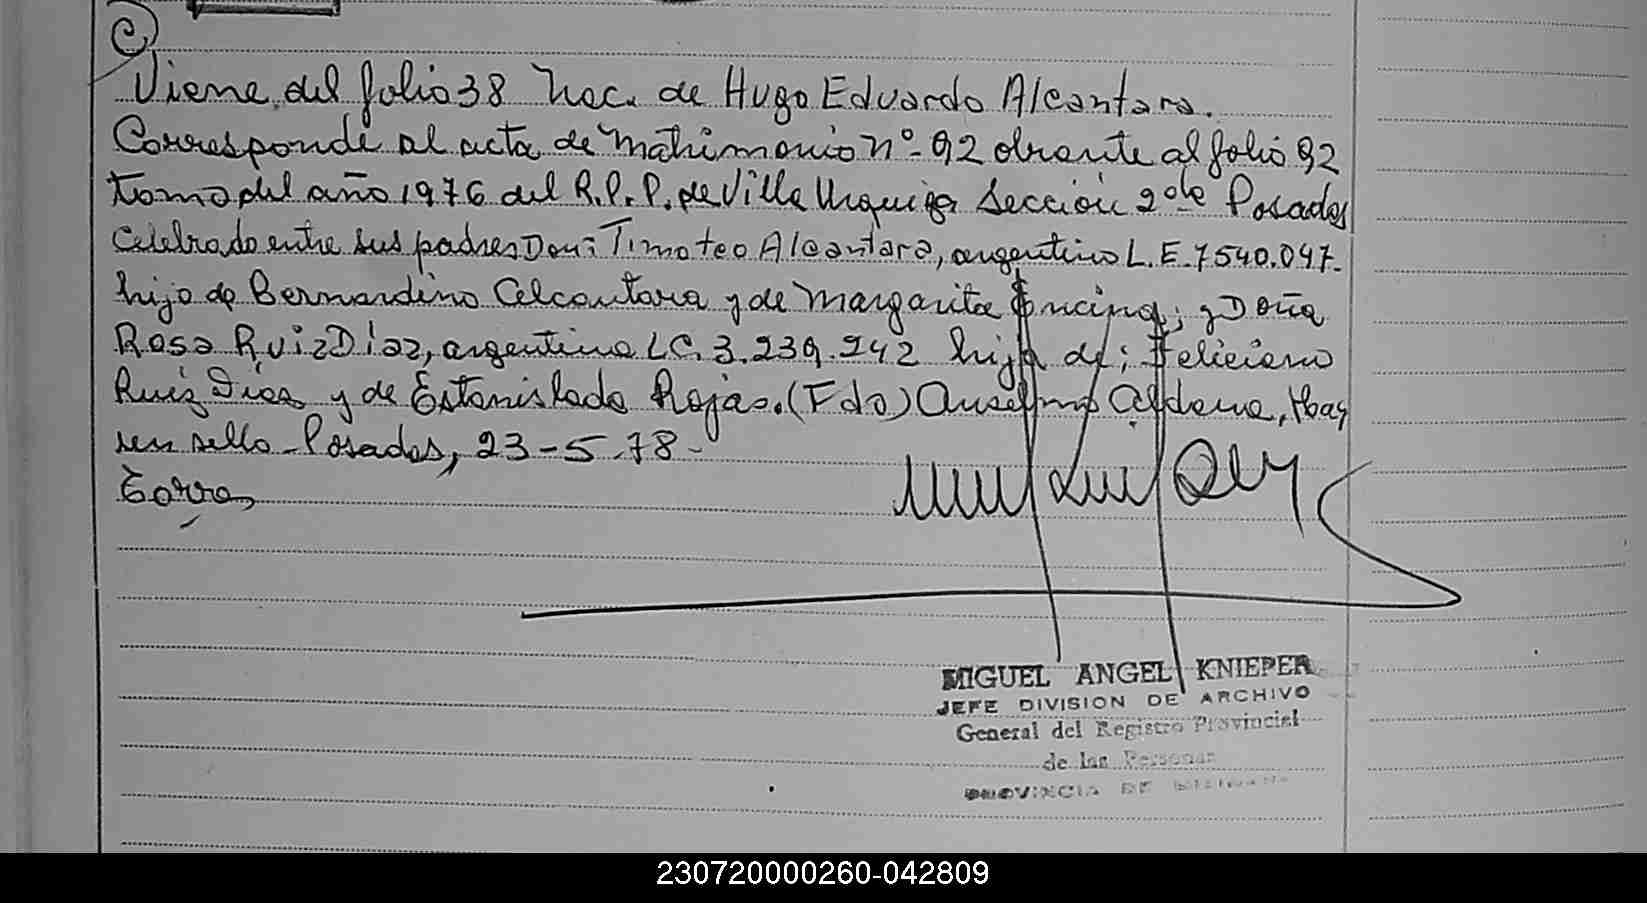 C)
Viene del folio 38 Nac. de Hugo Eduardo Alcantara.
Corresponde al acta de Matrimonio nº-92 obrante al folio 92
tomo del año 1976 del R.P.P. de Villa Urquiza Sección 2da Posadas
Celebrado entre sus padres Don: Timoteo Alcantara, argentino L.E. 7540.047-
hijo de Bernardino Alcantara y de Margarita Encina; y Doña
Rosa Ruiz Díaz, argentina LC. 3.239.242 hija de: Feliciano
Ruiz Díaz y de Estanislada Rojas. (Fdo) Anselmo Aldana, Hay
un sello - Posadas, 23-5-78-
MIGUEL ANGEL KNIEPER
JEFE DIVISION DE ARCHIVO
General del Registro Provincial
de las Personas
PROVINCIA DE MISIONES
230720000260-042809